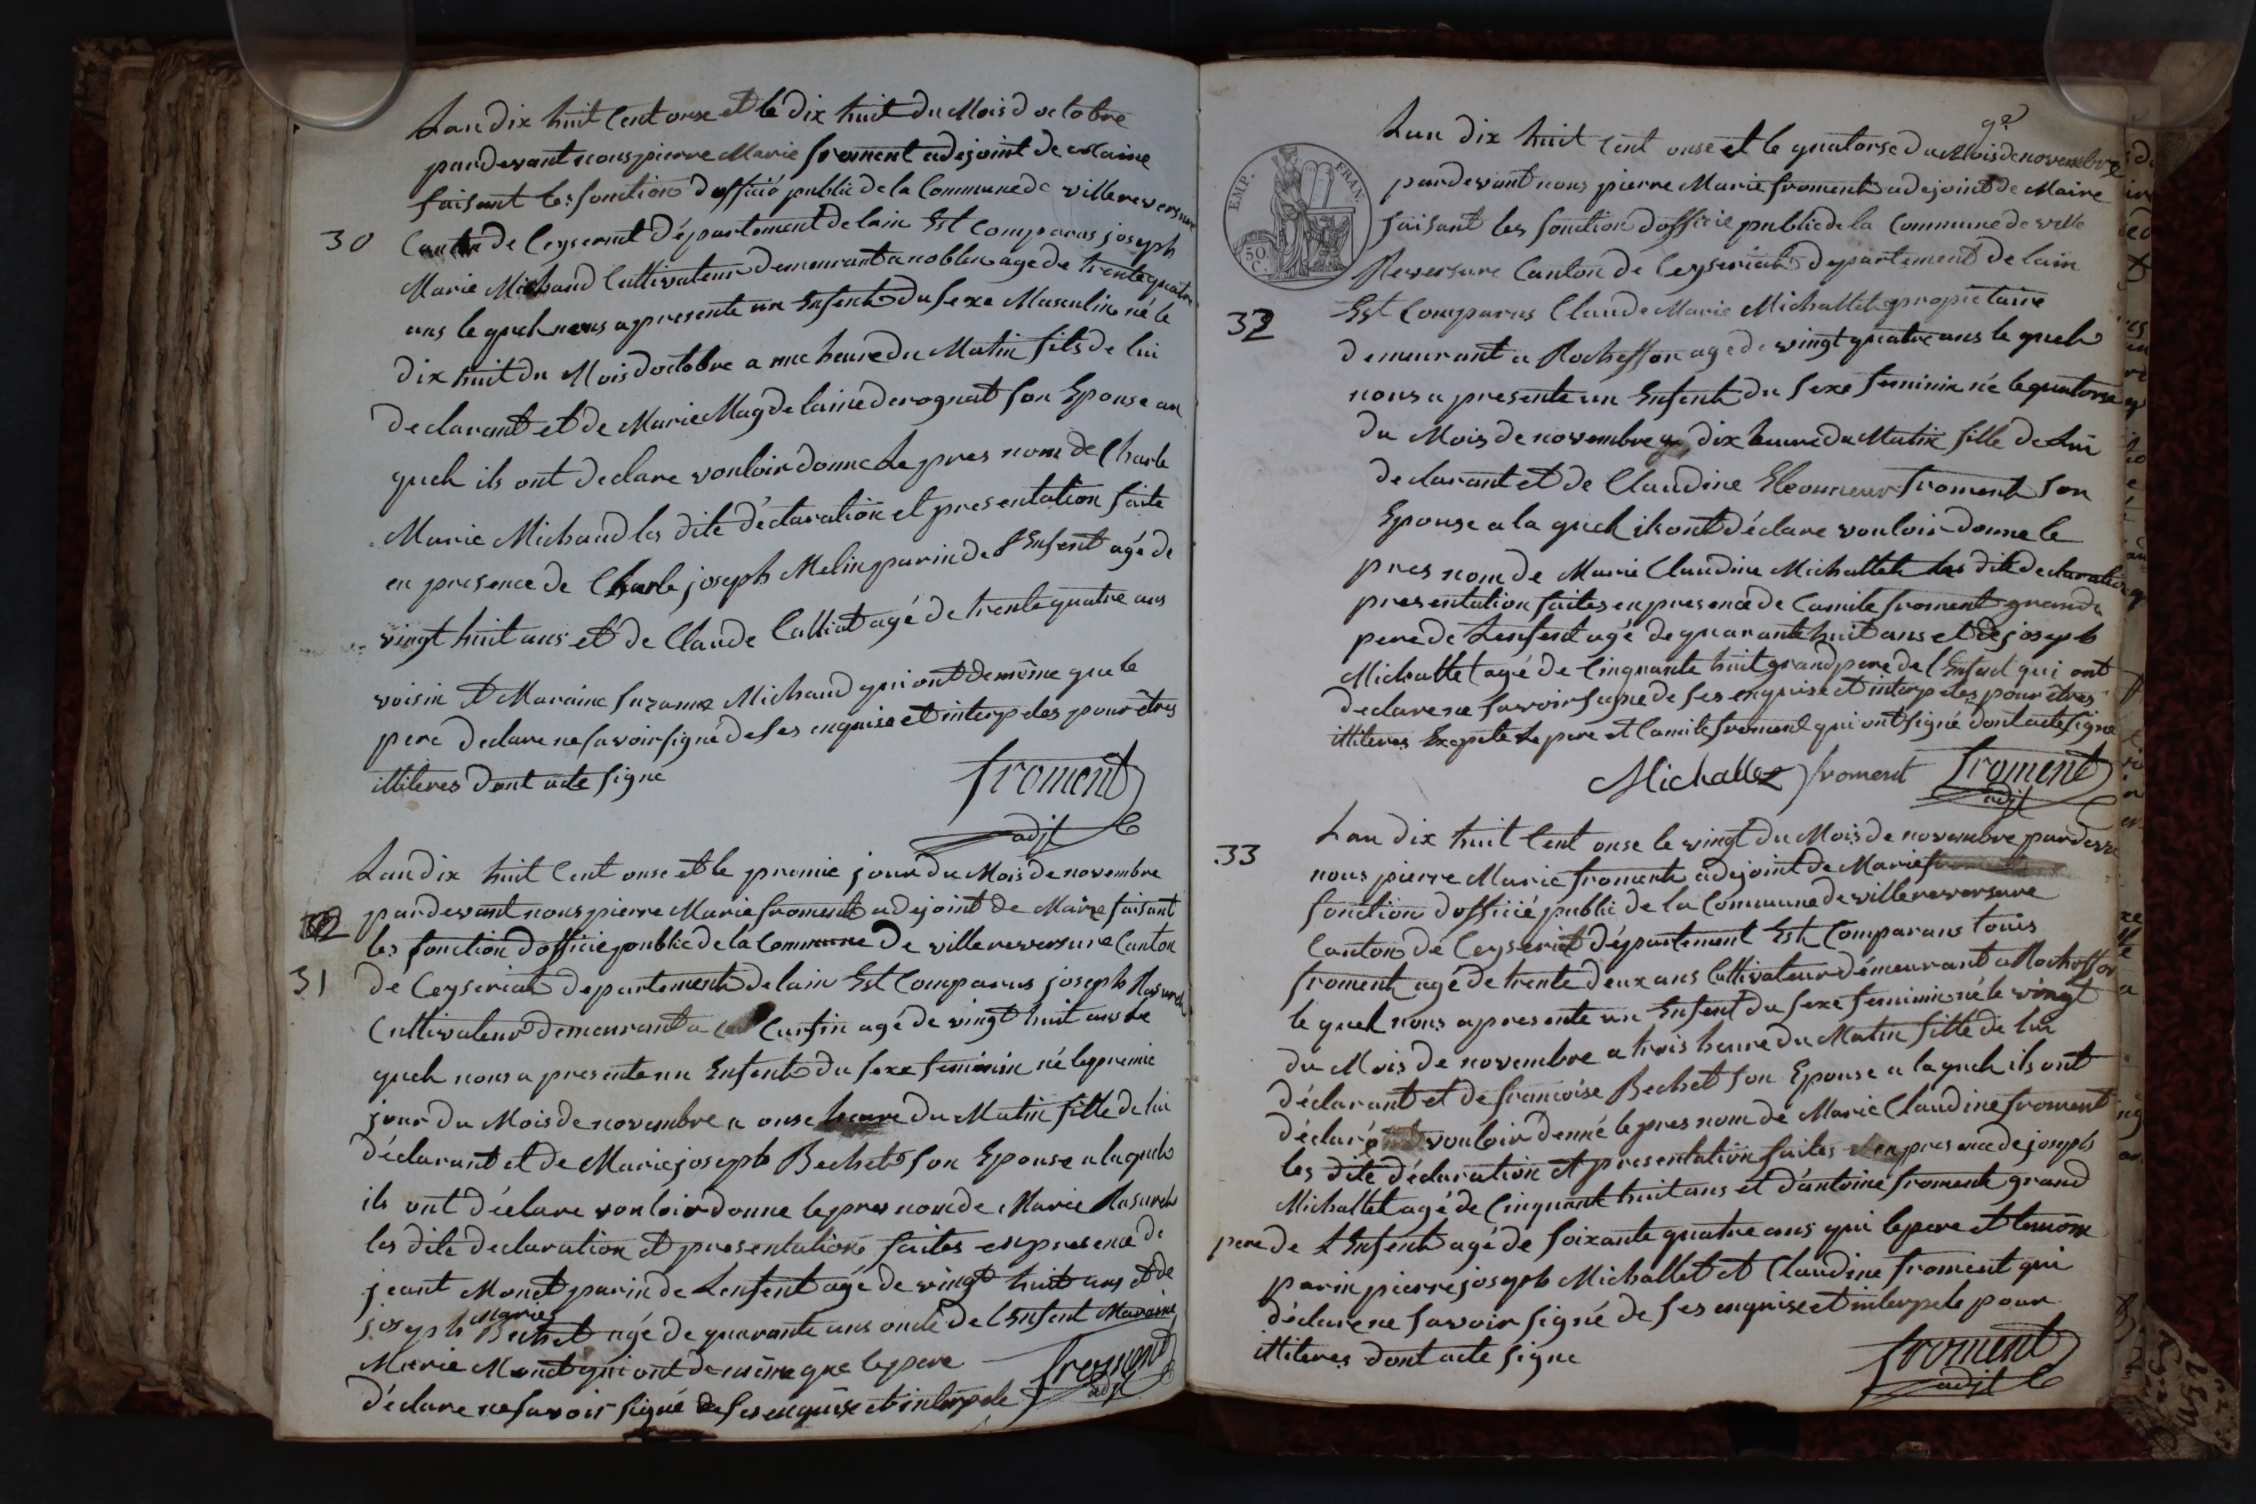 Lan dix huit Cent onse et le dix huit du Mois doctobre
pardevant nous pierre Marie froment adejoint de Maire
faisant les fonction dofficié public de la Commune de villereversure
30
Canton de Ceyseriat département de lain Est Comparus joseph
Marie Michaud Cultivateur demeurant a noblen age de trente quatre
ans le quel nous a presente un Enfent du sexe Masculin né le
dix huit du Mois doctobre a une heure du Matin fils de lui
declarant et de Marie Magdelaine derognat son Epouse au
quel ils ont declare vouloir donne Le pres nom de Charle
Marie Michaud les dite déclaration et presentation faite
en presence de Charle joseph Melin parin de l'Enfent agé de
vingt huit ans et de Claude Calliat agé de trente quatre ans
voisin et Maraine suzanne Michaud qui ont de mème que le
pere declare ne savoir signé de ses enquise et interpeles pour êtres
illiteres dont acte signe
froment
adjt
Lan dix huit Cent onse et le premié jour du Mois de novembre
pardevant nous pierre Marie froment adejoint de Maire faisant
les fonction dofficie public de la Commune De villereversure Canton
31
de Ceyseriat departement de lain Est Comparus joseph Rasurel
Cultivateur demeurant a Cursin agé de vingt huit ans le
quel nous a presente un Enfent du sexe feminin né le premie
jour du Mois de novembre a onse heure du Matin fille de lui
déclarant et de Marie joseph Bechet son Epouse a laquele
ils ont déclare vouloir donne le pres nom de Marie Rasurel
les dite declaration et presentation faites en presence de
jeant Monet parin de Lenfent agé de vingt huit ans et de
joseph Marie Bechet agé de quarante ans oncle de l'Enfent Maraine
Marie Monet qui ont de mème que le pere
déclare ne savoir signé de ses enquise et interpele
froment
adjt
92
Lan dix huit Cent onse et le quatorse du Mois de novembre
pardevant nous pierre Marie froment adejoint de Maire
EMP. FRAN.
50 C.
faisant les fonction dofficie public de la Commune de ville
Reversure Canton de Ceyseriat departement de lain
32
Est Comparus Claude Marie Michallet propietaire
demeurant a Rocheffon age de vingt quatre ans le quel
nous a presente un Enfent du sexe feminin né le quatorse
du Mois de novembre a dix heure du Matin fille de Lui
declarant et de Claudine Eleonneur froment son
Epouse a la quel ils ont déclare vouloir donne le
pres nom de Marie Claudine Michallet les dite declaration
presentation faites en presence de Camile froment grand
pere de Lenfent agé de quarante huit ans et de joseph
Michallet agé de Cinquante huit grand pere de l'Enfent qui ont
declare ne savoir signe de ses enquise et interpeles pour êtres
illiteres Exepete Le pere et Camile froment qui ont signé dont acte signe
Michallet froment froment
adjt
33
Lan dix huit Cent onse le vingt du Mois de novembre pardevant
nous pierre Marie froment adejoint de Marie
fonction dofficié public de la Commune de villereversure
Canton de Ceyseriat département Est Comparans louis
froment agé de trente deux ans Cultivateur démeurant a Rocheffon
le quel nous a presente un Enfent du sexe feminin né le vingt
du Mois de novembre a trois heure du Matin fille de lui
déclarant et de francoise Bechet son Epouse a laquel ils ont
déclaré vouloir donné le pres nom de Marie Claudine froment
les dite déclaration et presentation faites en presence de joseph
Michallet agé de Cinquante huit ans et dantoine froment grand
pere de l'Enfent agé de soixante quatre ans qui le pere et temoin
parin pierre joseph Michallet et Claudine froment qui
déclare ne savoir signé de ses enquise et interpele pour
illiteres dont acte signe
froment
adjt